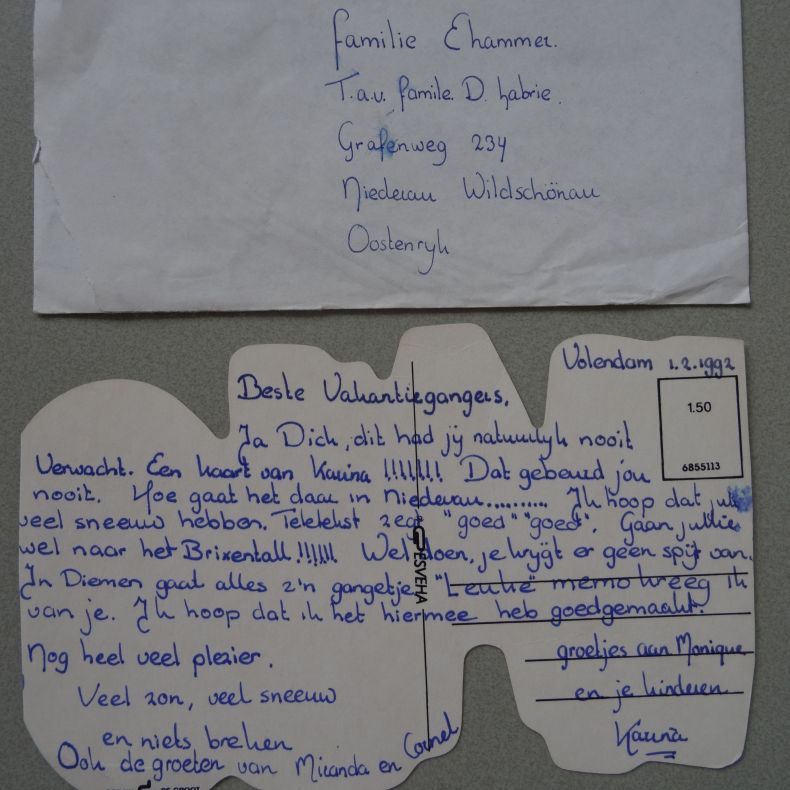 Familie Ehammer.
T.a.v. familie. D. Labrie.
Grafenweg 234
Niederau Wildschönau
Oostenryk
Volendam 1.2.1992
1.50
6855113
Beste Vakantiegangers,
Ja Dick, dit had jy natuurlyk nooit
Verwacht. Een kaart van Karina !!!!!!!! Dat gebeurd jou
nooit. Hoe gaat het daar in Niederau.......... Ik hoop dat jullie
veel sneeuw hebben. Teletekst zegt "goed" "goed". Gaan jullie
wel naar het Brixentall !!!!!! Wel doen, je krygt er geen spyt van.
In Diemen gaat alles z'n gangetje. "Leuke" memo kreeg ik
van je. Ik hoop dat ik het hiermee heb goedgemaakt.
Nog heel veel plezier.
Veel zon, veel sneeuw
en niets breken
groetjes aan Monique
en je kinderen
Karina
Ook de groeten van Miranda en Cornel
ESVEHA